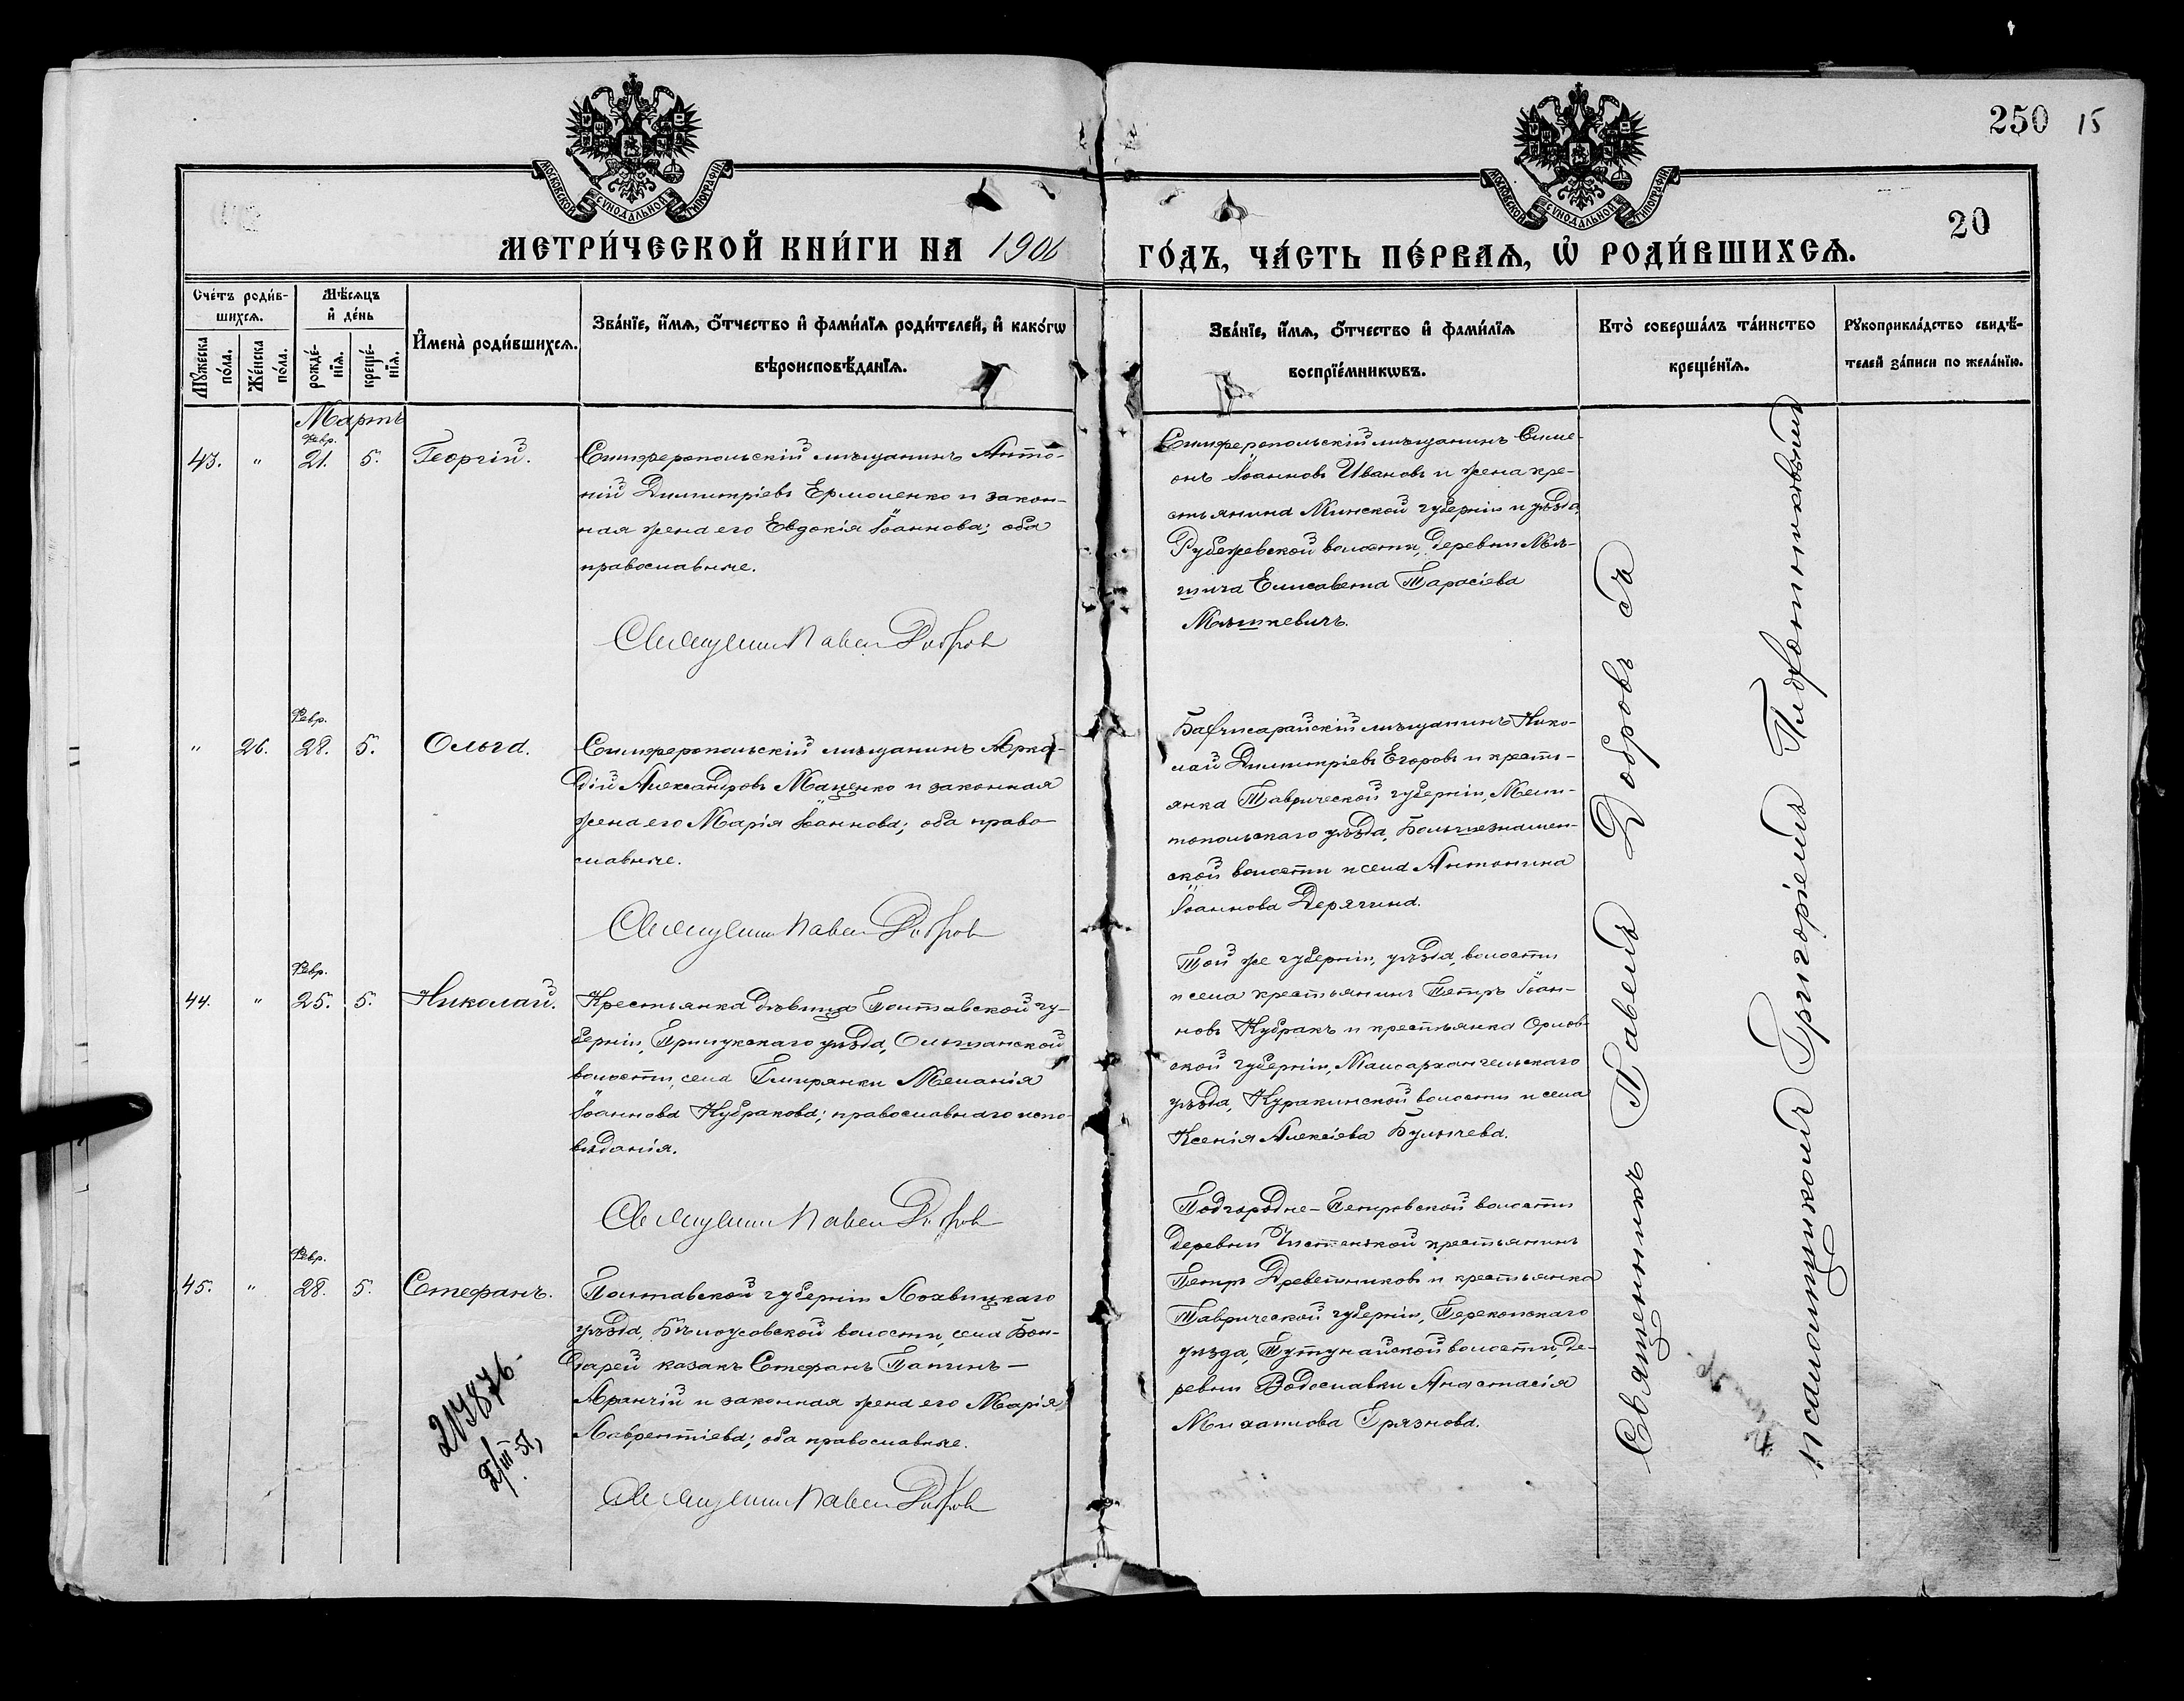 250 15
20
МОСКОВСКОЙ СѴНОДАЛЬНОЙ ТИПОГРАФІИ
МОСКОВСКОЙ СѴНОДАЛЬНОЙ ТИПОГРАФІИ
МЕТРИ́ЧЕСКОЙ КНИ́ГИ НА 1906 ГО́ДЪ, ЧА́СТЬ ПЕ́РВАѦ, Ѡ҆ РОДИ́ВШИХСѦ.
Сче́тъ роди́в-
шихсѧ.
Мꙋ́жеска по́ла.
Же́нска по́ла.
Мѣ́сѧцъ
и҆ де́нь
рожде́-
нїѧ.
креще́-
нїѧ.
И҆мена̀ роди́вшихсѧ.
Зва́нїе, и҆́мѧ, ѻ҆́тчество и҆ фами́лїѧ роди́телей, и҆ како́гѡ
вѣроисповѣ́данїѧ.
Зва́нїе, и҆́мѧ, ѻ҆́тчество и҆ фами́лїѧ
воспрїе́мникѡвъ.
Кто̀ соверша́лъ та́инство
креще́нїѧ.
Рꙋкоприкла́дство свидѣ́-
телей за́писи по жела́нїю.
Мартъ
Февр.
43. " 21. 5. Георгій.
Симферопольскій мѣщанинъ Анто-
ній Димитріевъ Ермоленко и закон-
ная жена его Евдокія Іоаннова; оба
православные.
Священникъ Павелъ Добровъ
Симферопольскій мѣщанинъ Симе-
онъ Іоанновъ Ивановъ и жена кре-
стьянина Минской губерніи и уѣзда,
Рубежевской волости, деревни
Елисавета Тарасіева
Мышкевичъ.
Февр.
" 26. 28. 5. Ольга.
Симферопольскій мѣщанинъ Арка-
дій Александровъ Маценко и законная
жена его Марія Іоаннова; оба право-
славные.
Священникъ Павелъ Добровъ
Бахчисарайскій мѣщанинъ Нико-
лай Димитріевъ Егоровъ и кресть-
янка Таврической губерніи, Мели-
топольскаго уѣзда, Большезнамен-
ской волости и села Антонина
Іоаннова Дерягина.
Февр.
44. " 25. 5. Николай.
Крестьянка дѣвица Полтавской гу-
берніи, Прилукскаго уѣзда, Ольшанской
волости, села Гмирянки Меланія
Іоаннова Кубракова; православнаго испо-
вѣданія.
Священникъ Павелъ Добровъ
Той же губерніи, уѣзда, волости
и села крестьянинъ Петръ Іоан-
новъ Кубракъ и крестьянка Орлов-
ской губерніи, Малоархангельскаго
уѣзда, Куракинской волости и села
Ксенія Алексіева Булычева.
Февр.
45. " 28. 5. Стефанъ.
Полтавской губерніи Лохвицкаго
уѣзда, Бѣлоусовской волости, села Бон-
дарей казакъ Стефанъ Папинъ-
Аранчій и законная жена его Марія
Лаврентіева; оба православные.
Священникъ Павелъ Добровъ
Подгородне-Петровской волости
деревни Чистенькой крестьянинъ
Петръ Древетниковъ и крестьянка
Таврической губерніи, Перекопскаго
уѣзда, волости, де-
ревни Водославки Анастасія
Михаилова Грязнова.
213876
2/III-51,
Священникъ Павелъ Добровъ съ
псаломщикомъ Григоріемъ